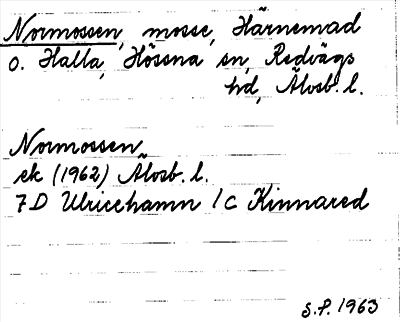 Normossen, mosse, Härnemad
o. Halla, Hössna sn, Redvägs
hd, Älvsb. l.
Normossen
ek (1962) Älvsb. l.
7D Ulricehamn 1c Kinnared
S.P. 1963